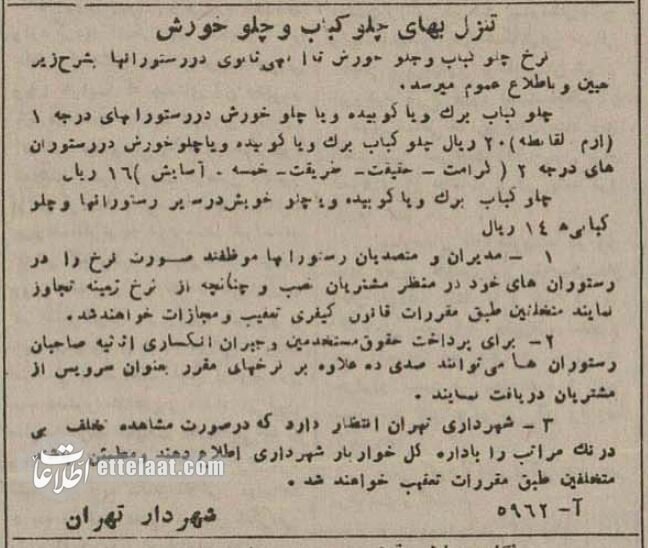 تنزل بهای چلو کباب و چلو خورش
نرخ چلو کباب و چلو خورش تا آگهی ثانوی در رستورانها بشرح زیر
تعیین و باطلاع عموم میرسد.
چلو کباب برك و یا کوبیده و یا چلو خورش در رستورانهای درجه ۱
(ارم لقانطه) ۲۰ ریال چلو کباب برك ویا کوبیده ویا چلو خورش در رستوران
های درجه ۲ (کرامت - حقیقت - طریقت - خمسه - آسایش) ۱۶ ریال
چلو کباب برك و یا کوبیده و یا چلو خورش در سایر رستورانها و چلو
کبابی ها ۱۴ ریال
۱ - مدیران و متصدیان رستورانها موظفند صورت نرخ را در
رستوران های خود در منظر مشتریان نصب و چنانچه از نرخ زمینه تجاوز
نمایند متخلفین طبق مقررات قانون کیفری تعقیب و مجازات خواهند شد.
۲- برای پرداخت حقوق مستخدمین و جبران انکساری اثاثیه صاحبان
رستوران ها می توانند صدی ده علاوه بر نرخهای مقرر بعنوان سرویس از
مشتریان دریافت نمایند.
۳ - شهرداری تهران انتظار دارد که در صورت مشاهده تخلف بی
درنك مراتب را باداره کل خواربار شهرداری اطلاع دهند و مطمئن
متخلفین طبق مقررات تعقیب خواهند شد.
آ- ۵۹۶۲
شهردار تهران
اطلاعات ettelaat.com